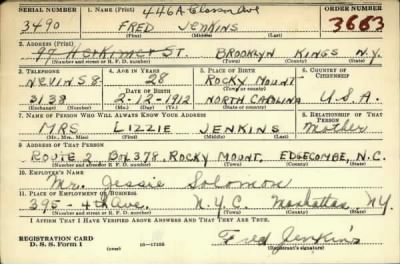 SERIAL NUMBER 1. NAME (Print) 446A Classon Ave ORDER NUMBER
3490 FRED JENKINS 3663
(First) (Middle) (Last)
2. ADDRESS (Print)
97 Herkimer ST. BROOKLYN KINGS N.Y.
(Number and street or R. F. D. number) (Town) (County) (State)
3. TELEPHONE 4. AGE IN YEARS 5. PLACE OF BIRTH 6. COUNTRY OF CITIZENSHIP
NEVINS 8 28 ROCKY MOUNT
DATE OF BIRTH (Town or county)
3138 2-12-1912 NORTH CAROLINA U.S.A.
(Exchange) (Number) (Mo.) (Day) (Yr.) (State or country)
7. NAME OF PERSON WHO WILL ALWAYS KNOW YOUR ADDRESS 8. RELATIONSHIP OF THAT PERSON
MRS LIZZIE JENKINS Mother
(Mr., Mrs., Miss) (First) (Middle) (Last)
9. ADDRESS OF THAT PERSON
ROUTE 2 BOX 378, ROCKY MOUNT, EDGECOMBE, N.C.
(Number and street or R. F. D. number) (Town) (County) (State)
10. EMPLOYER'S NAME
Mr. Jessie Solomon
11. PLACE OF EMPLOYMENT OR BUSINESS
395 - 4th Ave. N.Y.C. Manhattan, N.Y.
(Number and street or R. F. D. number) (Town) (County) (State)
I AFFIRM THAT I HAVE VERIFIED ABOVE ANSWERS AND THAT THEY ARE TRUE.
REGISTRATION CARD
D. S. S. Form 1 Fred Jenkins
(Registrant's signature)